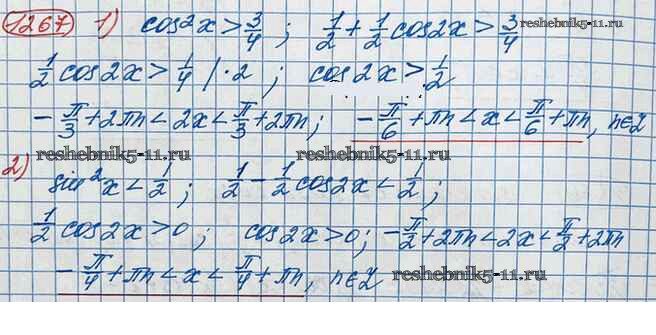 1267 1) cos²x > 3/4 ; 1/2 + 1/2 cos2x > 3/4
1/2 cos2x > 1/4 | · 2 ; cos2x > 1/2
- π/3 + 2πn < 2x < π/3 + 2πn ; - π/6 + πn < x < π/6 + πn, n∈Z
reshebnik5-11.ru reshebnik5-11.ru
2) sin²x < 1/2 ; 1/2 - 1/2 cos2x < 1/2 ;
1/2 cos2x > 0 ; cos2x > 0 ; - π/2 + 2πn < 2x < π/2 + 2πn
- π/4 + πn < x < π/4 + πn, n∈Z reshebnik5-11.ru